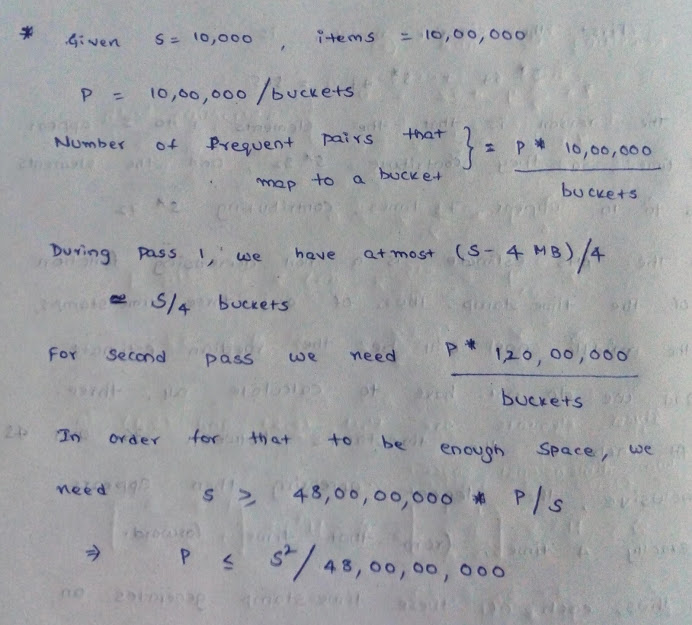 * Given S = 10,000 , items = 10,00,000
P = 10,00,000 / buckets
Number of frequent pairs that map to a bucket } = P * 10,00,000 / buckets
During pass 1, we have atmost (S - 4 MB)/4
≃ S/4 buckets
For second pass we need P * 120,00,000 / buckets
In order for that to be enough space, we
need S ≥ 48,00,00,000 * P/S
⇒ P ≤ S²/48,00,00,000